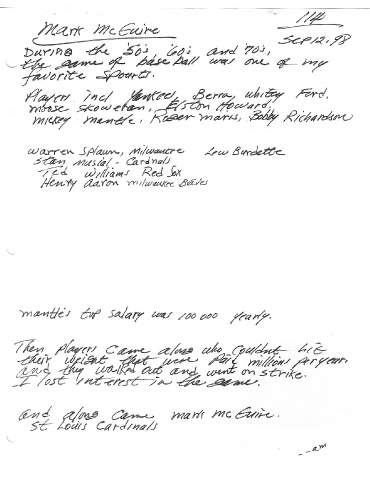 114
Mark McGuire
Sep 12, 98
During the '50's, '60's and '70's,
the game of baseball was one of my
favorite sports.
Players incl Yankees, Berra, Whitey Ford,
moose Skowron, Elston Howard,
mickey mantle. Roger maris, Bobby Richardson
Warren Splawn, Milwaukee Lew Burdette
Stan Musial - Cardnals
Ted Williams Red Sox
Henry Aaron milwaukee Braves
mantle's top salary was 100 000 yearly.
Then players came along who couldn't hit
their weight that were paid millions per year.
and they walked out and went on strike.
I lost interest in the game.
and along came mark McGuire.
St Louis Cardinals